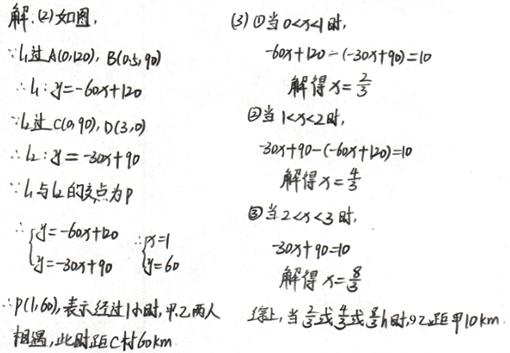 解:(2)如图,
∵l₁过A(0,120), B(0.5,90)
∴l₁:y=-60x+120
∵l₂过C(0,90),D(3,0)
∴l₂:y=-30x+90
∵l₁与l₂的交点为P
∴{y=-60x+120 y=-30x+90 ∴{x=1 y=60
∴P(1,60),表示经过1小时,甲、乙两人
相遇,此时距C村60km.
(3)①当0<x<1时,
-60x+120-(-30x+90)=10
解得x=2/3
②当1<x<2时,
-30x+90-(-60x+120)=10
解得x=4/3
③当2<x<3时,
-30x+90=10
解得x=8/3
综上,当2/3或4/3或8/3h时,乙距甲10km.